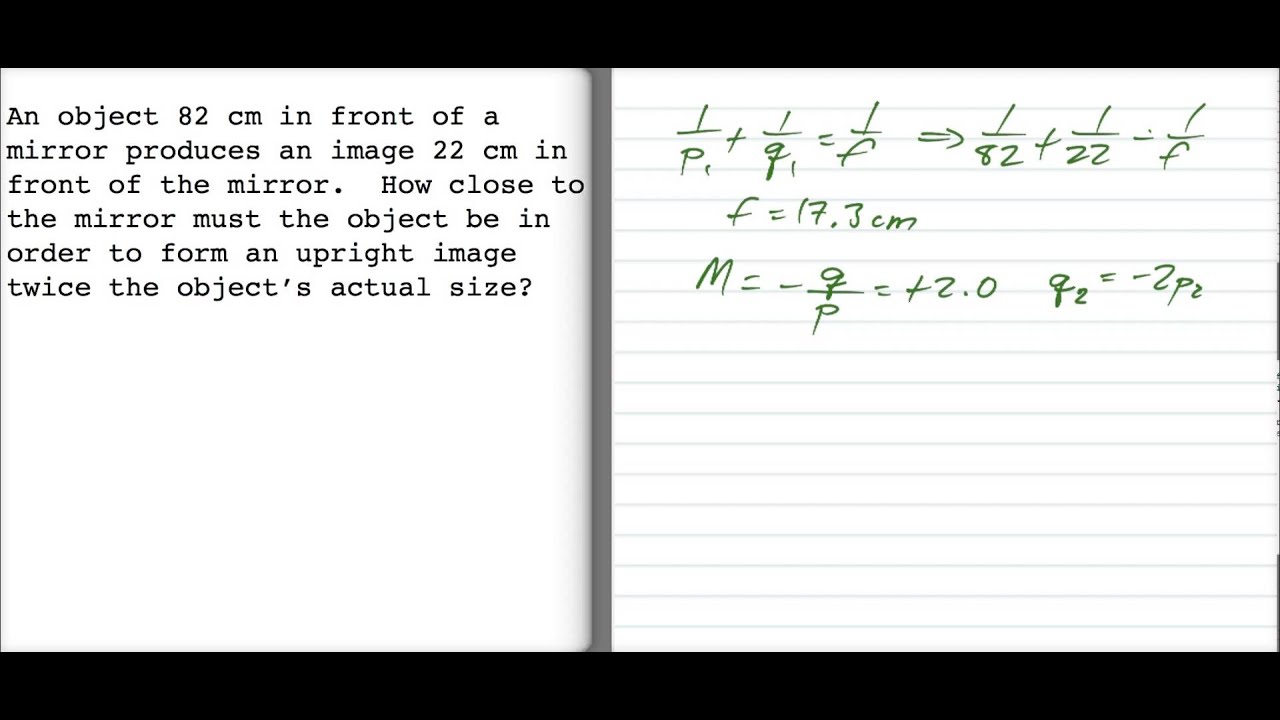 An object 82 cm in front of a
mirror produces an image 22 cm in
front of the mirror. How close to
the mirror must the object be in
order to form an upright image
twice the object's actual size?
1/p₁ + 1/q₁ = 1/f ⇒ 1/82 + 1/22 = 1/f
f = 17.3 cm
M = - q/p = +2.0 q₂ = -2p₂